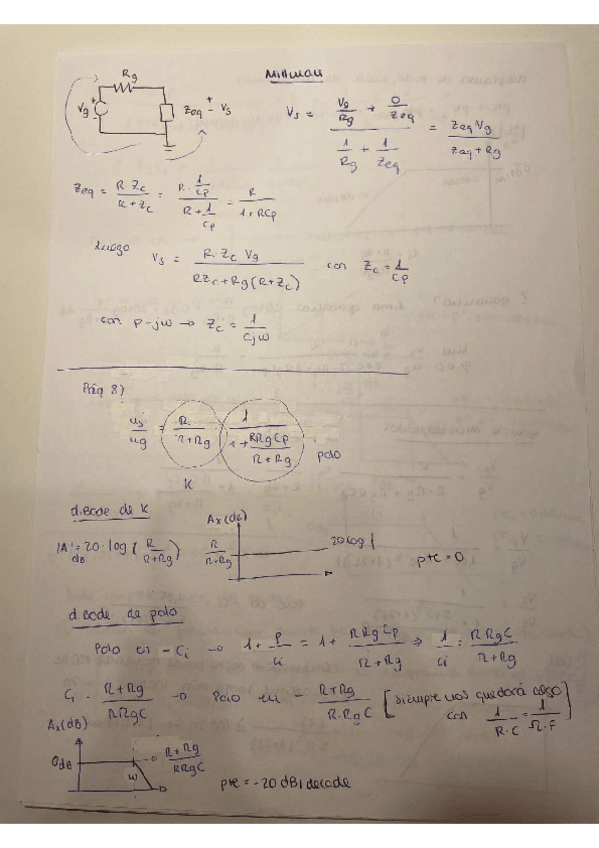 Millman
Rg
Vg Zeq Vs
Vs = (Vg/Rg + 0/Zeq) / (1/Rg + 1/Zeq) = Zeq Vg / (Zeq + Rg)
Zeq = R · Zc / (R + Zc) = (R · 1/Cp) / (R + 1/Cp) = R / (1 + RCp)
Luego Vs = R · Zc Vg / (RZc + Rg (R + Zc)) con Zc = 1/Cp
con p = jω → Zc = 1/(Cjω)
Pág 8)
us/ug = R/(R + Rg) · 1/(1 + RRgCp/(R + Rg)) polo
K
d.Bode de K
|A|dB = 20 · log (R/(R+Rg))
Ax(dB)
R/(R+Rg)
20log
pte = 0
d.Bode de polo
Polo en -Ci → 1 + p/Ci = 1 + RRgCp/(R + Rg) ⇒ 1/Ci = RRgC/(R + Rg)
Ci = (R + Rg)/(RRgC) → Polo en - (R+Rg)/(R·RgC) [siempre nos quedará algo con 1/(R·C) = 1/(Ω·F)]
Ax(dB)
0dB
ω
→ (R + Rg)/(RRgC)
pte = -20 dB/decade